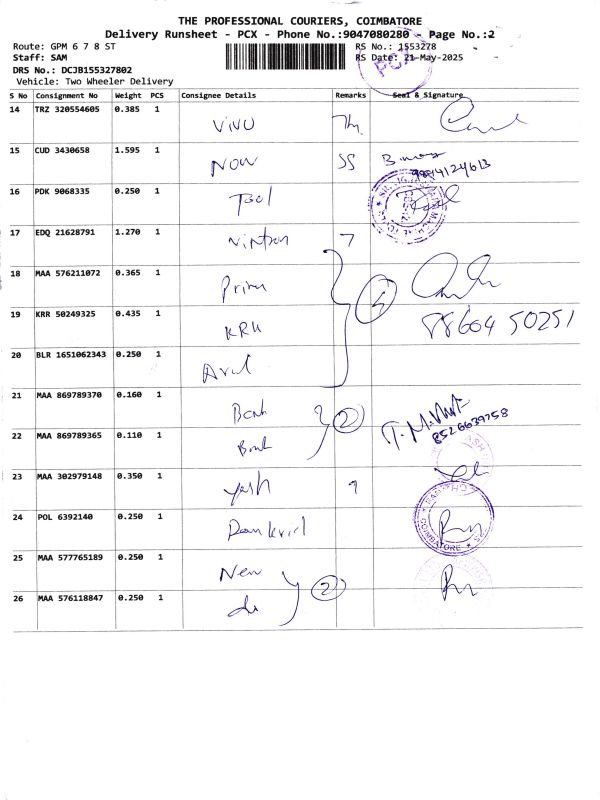 THE PROFESSIONAL COURIERS, COIMBATORE
Delivery Runsheet - PCX - Phone No.:9047080280 - Page No.:2
Route: GPM 6 7 8 ST
RS No.: 1553278
Staff: SAM
RS Date: 21-May-2025
DRS No.: DCJB155327802
Vehicle: Two Wheeler Delivery
S No Consignment No Weight PCS Consignee Details Remarks Seal & Signature
14 TRZ 320554605 0.385 1 VIVO
15 CUD 3430658 1.595 1 NOW SS
9884124613
16 PDK 9068335 0.250 1 Tool
17 EDQ 21628791 1.270 1 7
18 MAA 576211072 0.365 1
19 KRR 50249325 0.435 1 KRU 88604 50251
20 BLR 1651062343 0.250 1 Arul
21 MAA 869789370 0.160 1 Bank 2
8526639758
22 MAA 869789365 0.110 1 Bank
23 MAA 302979148 0.350 1 Yash
24 POL 6392140 0.250 1
COIMBATORE
25 MAA 577765189 0.250 1 New
26 MAA 576118847 0.250 1 2